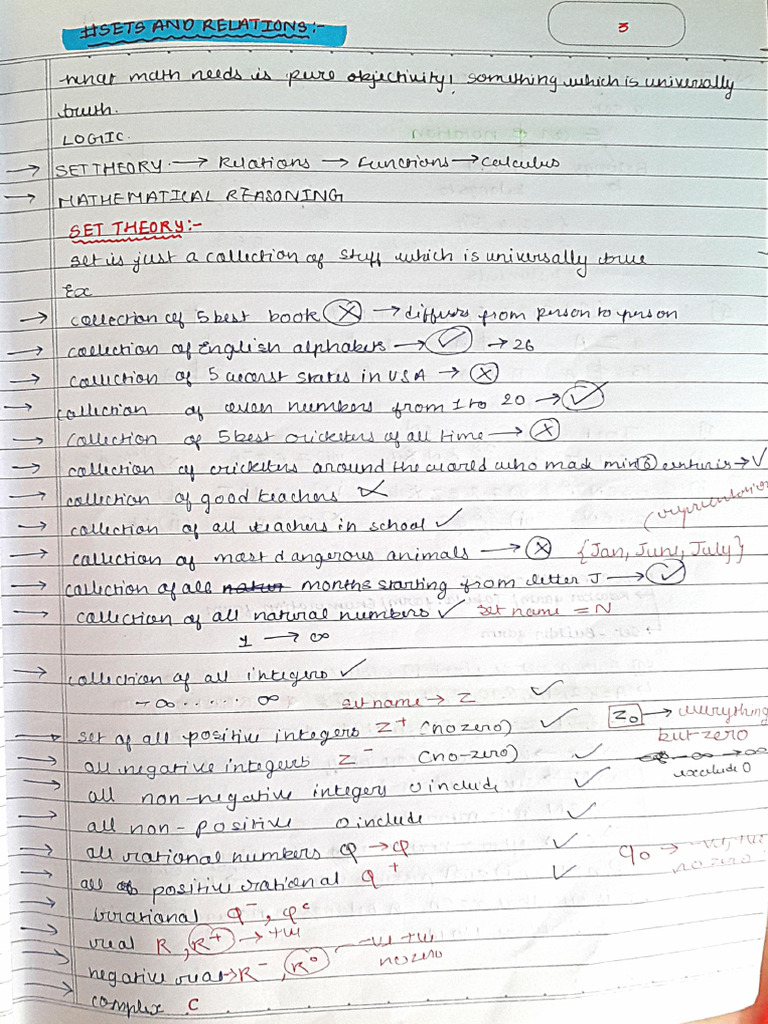 #SETS AND RELATIONS:-
3
what math needs is pure objectivity! something which is universally
truth.
LOGIC.
→ SET THEORY. → Relations → Functions → Calculus
→ MATHEMATICAL REASONING
SET THEORY:-
Set is just a collection of stuff which is universally true
Ex
→ collection of 5 best book ✗ → differs from person to person
→ collection of English alphabets → ✓ → 26
→ collection of 5 worst states in USA → ✗
→ collection of even numbers from 1 to 20 → ✓
→ collection of 5 best cricketers of all time → ✗
→ collection of cricketers around the world who made min 8 centuries → ✓
→ collection of good teachers ✗
→ collection of all teachers in school ✓
(representation
→ collection of most dangerous animals → ✗ {Jan, June, July}
→ collection of all months starting from letter J → ✓
→ collection of all natural numbers ✓ set name = N
1 → ∞
→ collection of all integers ✓
-∞ ..... ∞ set name → Z ✓
→ set of all positive integers Z⁺ (no zero) ✓ Z₀ → everything
but zero
→ all negative integers Z⁻ (no-zero) ✓ -∞ → ∞
exclude 0
→ all non-negative integers 0 include ✓
→ all non-positive 0 include ✓
→ all rational numbers Q → Q ✓ Q₀ → -ve, +ve
no zero
→ all positive rational Q⁺ ✓
→ irrational Q⁻, Qᶜ
→ real R, R⁺ → +ve
→ negative real → R⁻, R⁰ -ve +ve
no zero
→ complex C